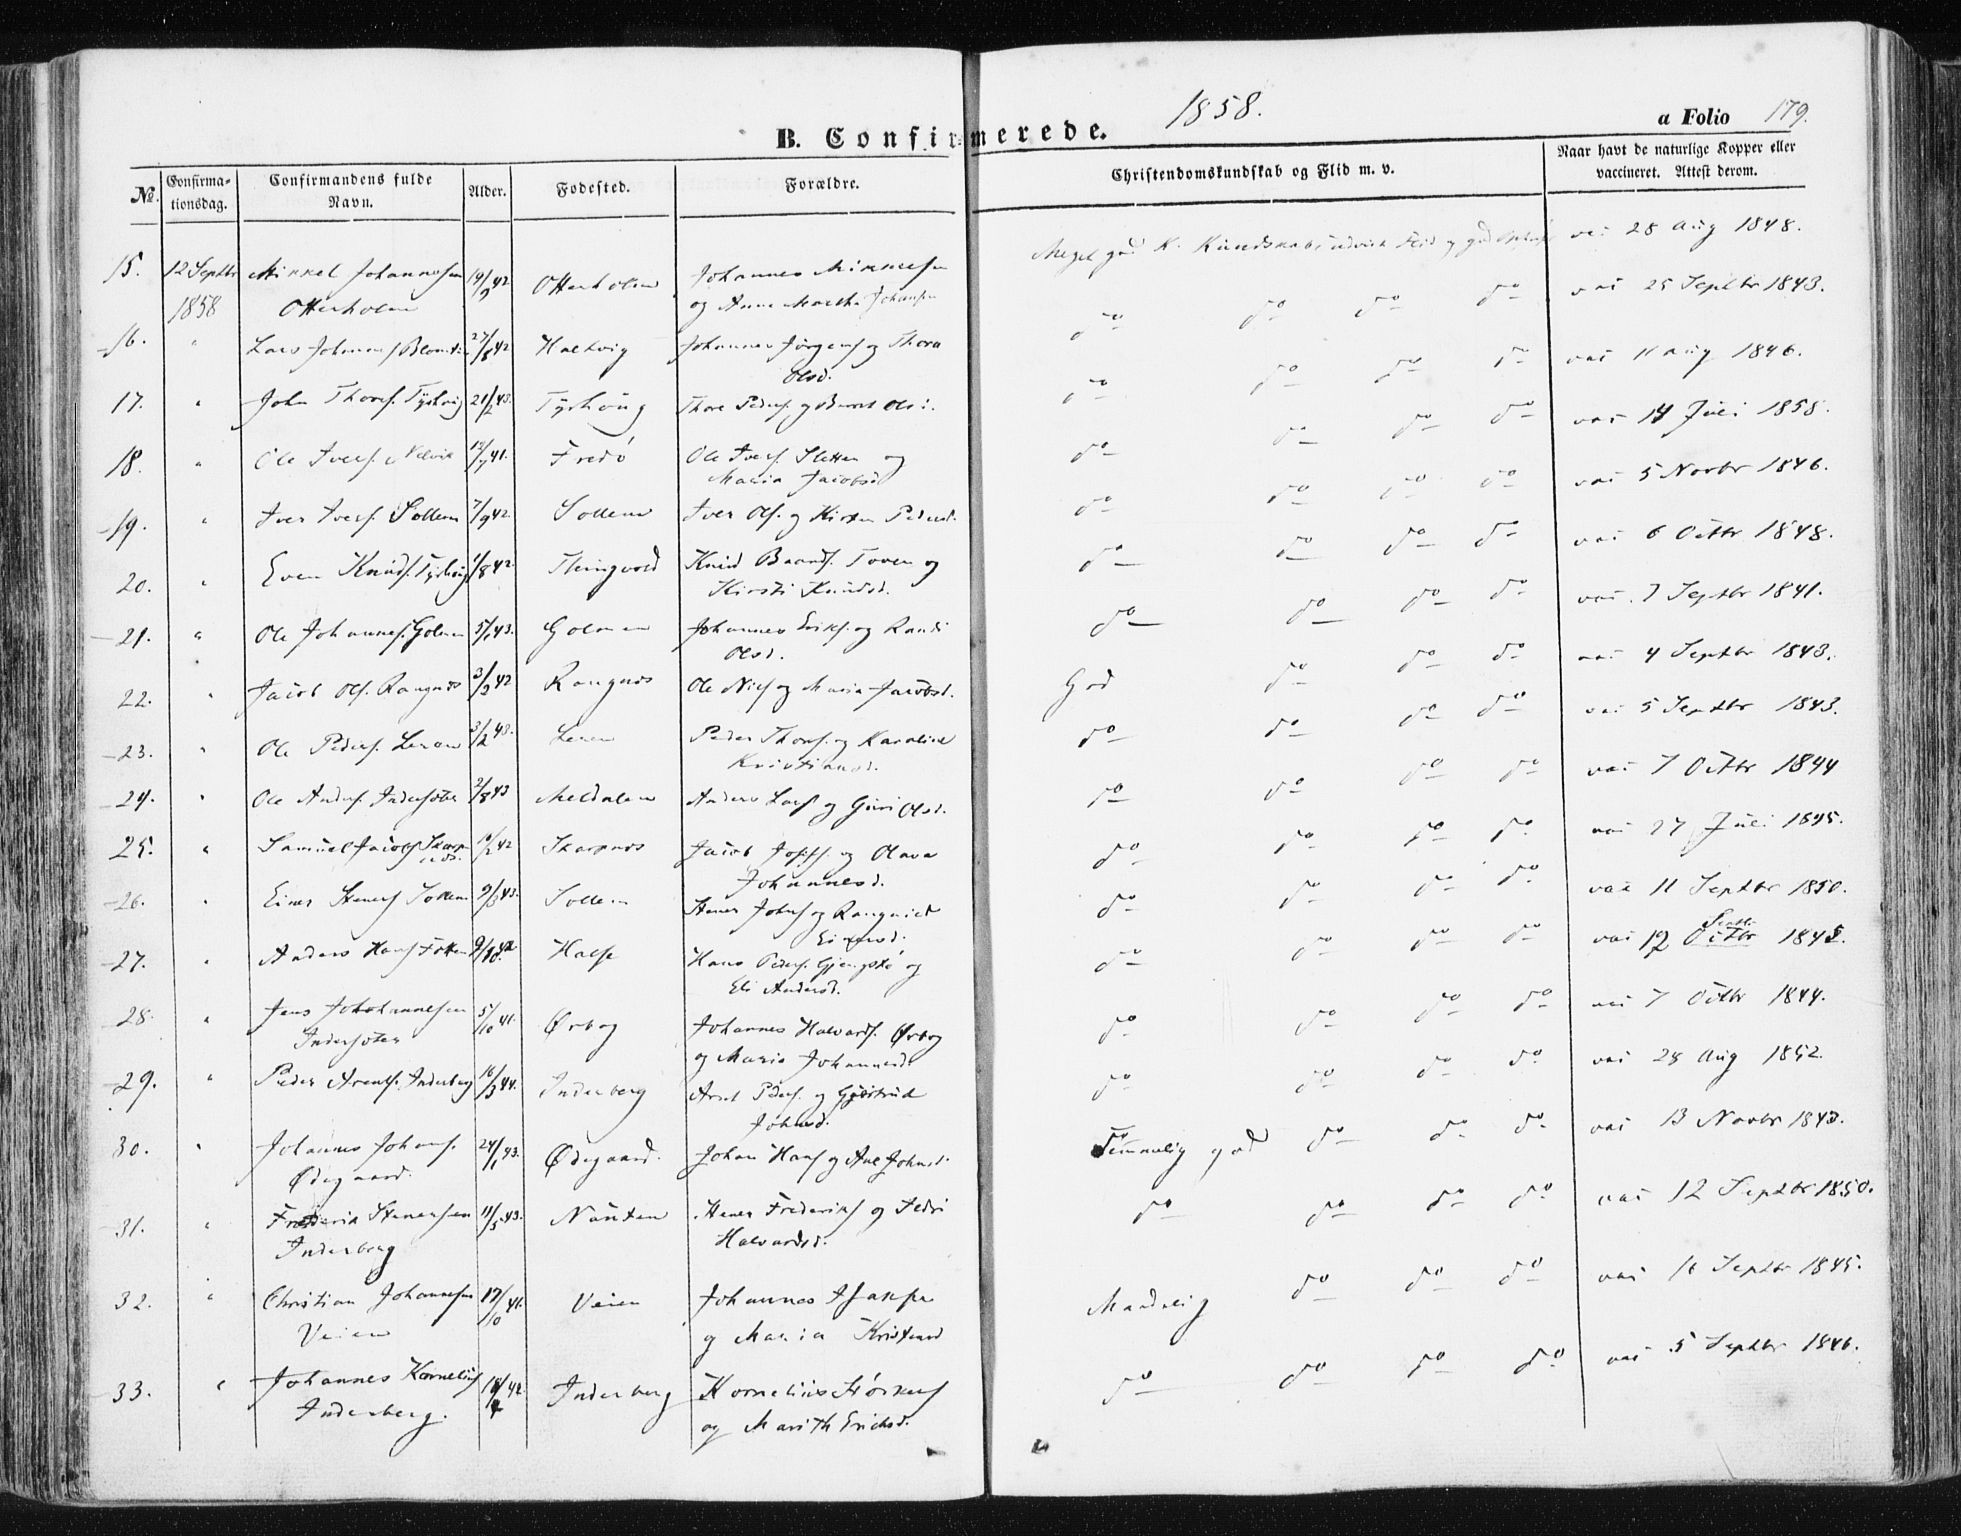 1858.
B. Confirmerede.
a Folio 179.
No. Confirmationsdag. Confirmandens fulde Navn. Alder. Fødested. Forældre. Christendomskundskab og Flid m. v. Naar havt de naturlige Kopper eller vaccineret. Attest derom.
15. 12 Septbr 1858 Mikkel Johannesen Otterholm 19/9 42 Otterholm Johannes Mikkelsen og Anne Marthe Meget god K. Kundskab vac 28 Aug 1848.
16. " Lars Johannes 27/8 42 Johannes Jørgens og Thora Olsd. do do do do vac 25 Septbr 1843.
17. " John Thores. Tyshaug 21/2 43. Tyshaug Thore Peders. og Beret Olsd. do do do do vac 11 Aug 1846.
18. " Ole Ivers. Nelvik 13/7 41. Fredø Ole Ivers. Sletten og Maria Jacobsd. do do do do vac 14 Juli 1858.
19. " Iver Ivers. Sollem 7/9 42. Sollem Iver Ols. og Kirsten Pedersd. do do do do vac 5 Novbr 1846.
20. " Even Knuds. Tyshaug 1/8 42. Thingvold Knud Baards. Toven og Kirsti Knudsd. do do do do vac 6 Octbr 1848.
21. " Ole Johannes. Golmen 5/1 43. Golmen Johannes Eriks. og Randi Olsd. do do do do vac 7 Septbr 1841.
22. " Jacob Ols. Rangnos 3/2 42 Rangnos Ole Niels og Maria Jacobsd. God do do do vac 4 Septbr 1843.
23. " Ole Peders. Leren 3/2 43. Leren Peder Thores. og Karoline Kristiansd. do do do do vac 5 Septbr 1843.
24. " Ole Anders. Indersæter 2/8 43 Meldalen Anders Lars og Guri Olsd. do do do do vac 7 Octbr 1844
25. " Samuel Jacobs Skarpnos. 10/2 42 Skarpnos Jacob og Olava Johannesd. do do do do vac 27 Juli 1845.
26. " Einer Steners Sollem 9/6 43. Sollem Stener Johns og Rangnild Einersd. do do do do vac 11 Septbr 1850.
27. " Anders Hans 42 Halse Hans Peders. og Eli Andersd. do do do do vac 12 Septbr Octbr 1845.
28. " Jens Johannesen Indersæter 5/10 41. Ørbog Johannes Halvards. Ørbog og Maria Johannesd. do do do do vac 7 Octbr 1844.
29. " Peder Arents. Inderberg 16/3 44. Inderberg Arnt Peders. og Gjertrud Johnsd. do do do do vac 28 Aug 1852.
30. " Johannes Johans. Ødegaard. 24/1 43. Ødegaard. Johan Hans og Ane Johnsd. Temmelig god do do do vac 13 Novbr 1843.
31. " Frederik Stenersen Inderberg 11/5 43. Nauten Stener Frederiks og Sedri Halvardsd. do do do do vac 12 Septbr 1850.
32. " Christian Johannesen Veien 17/10 41. Veien Johannes og Maria Kristensd Maadelig do do do vac 16 Septbr 1845.
33. " Johannes Kornelius Inderberg. 42 Inderberg Kornelius Størkers og Marith Erichsd. do do do do vac 5 Septbr 1846.